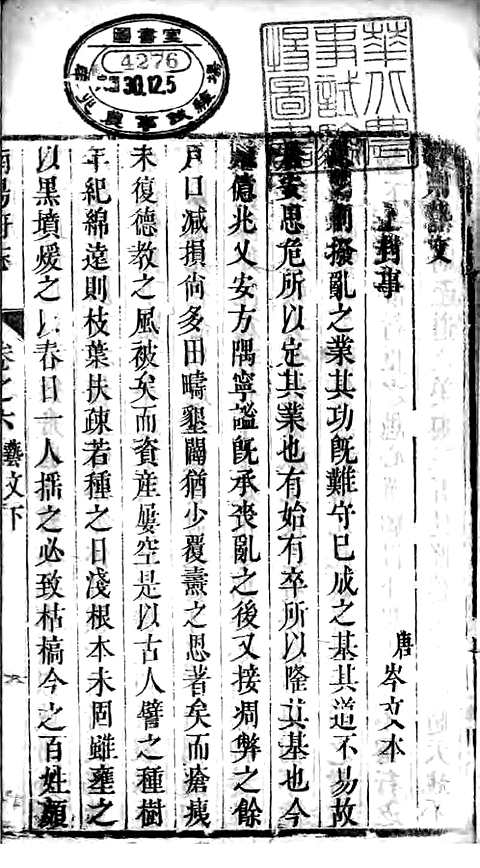 藝文
上封事
唐岑文本
撥亂之業其功旣難守已成之基其道不易故
居安思危所以定其業也有始有卒所以隆其基也今
雖億兆乂安方隅寧謐旣承喪亂之後又接凋弊之餘
戶口减損尙多田疇墾闢猶少覆燾之恩著矣而瘡痍
未復德教之風被矣而資産屢空是以古人譬之種樹
年紀綿遠則枝葉扶疎若種之日淺根本未固雖壅之
以黑墳煖之以春日一人揺之必致枯槁今之百姓頗
南陽府志
卷之六
藝文下
圖書室
4276
30.12.5